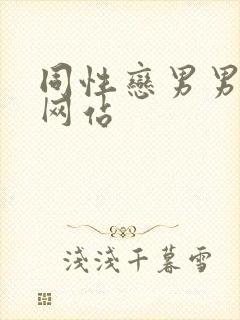 同性戀男男
网站
淺淺千暮雪